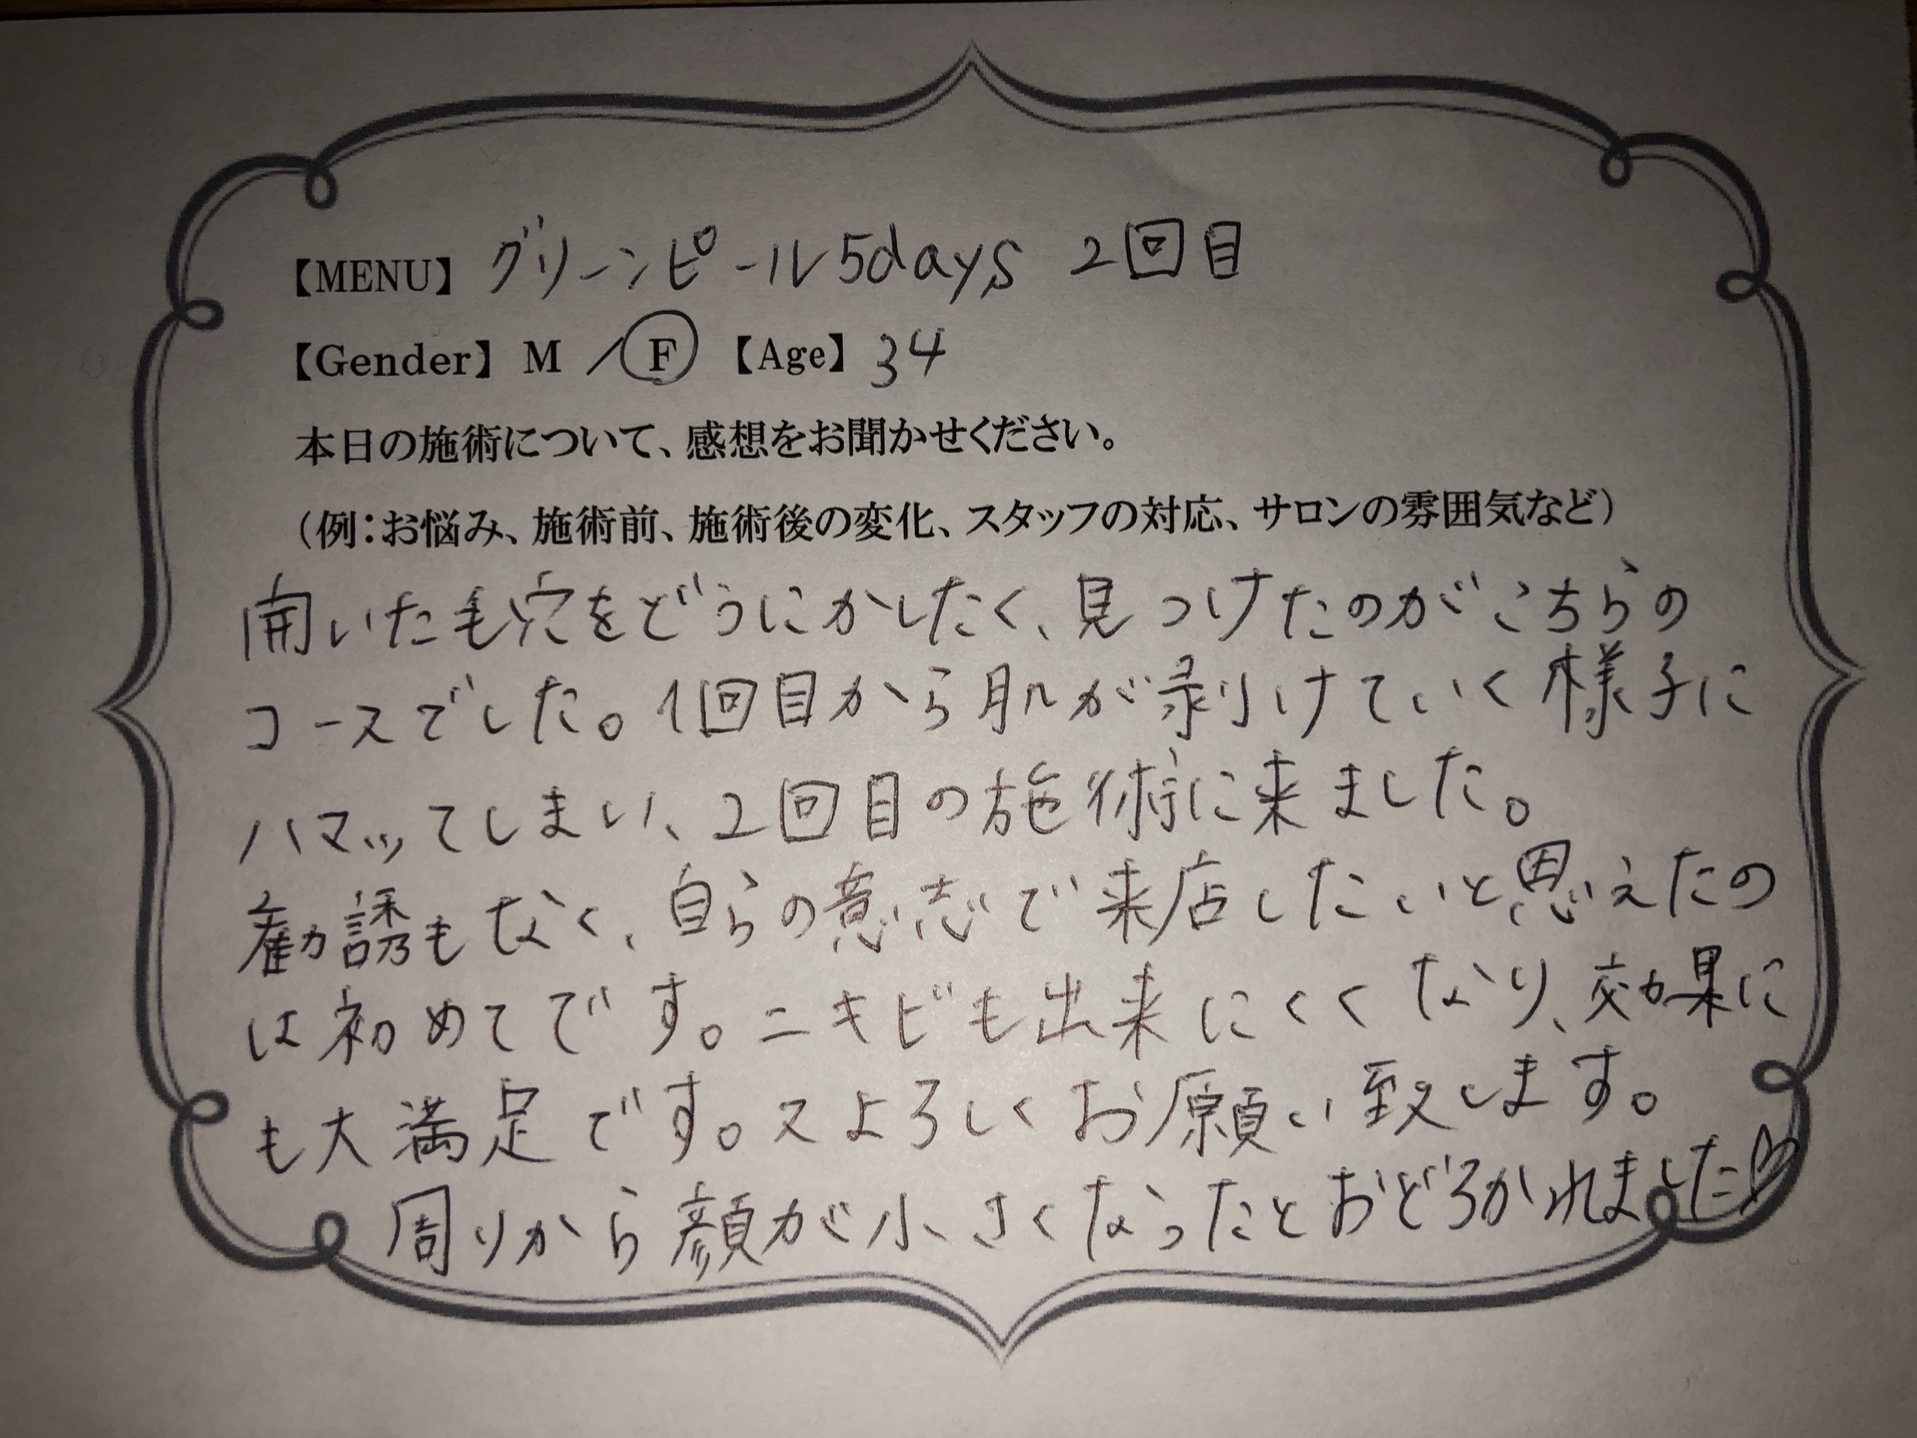 【MENU】グリーンピール5days 2回目
【Gender】M／F【Age】34
本日の施術について、感想をお聞かせください。
（例：お悩み、施術前、施術後の変化、スタッフの対応、サロンの雰囲気など）
開いた毛穴をどうにかしたく、見つけたのがこちらの
コースでした。1回目から肌が剥けていく様子に
ハマッてしまい、2回目の施術に来ました。
勧誘もなく、自らの意志で来店したいと思えたの
は初めてです。ニキビも出来にくくなり、効果に
も大満足です。又よろしくお願い致します。
周りから顔が小さくなったとおどろかれました♡